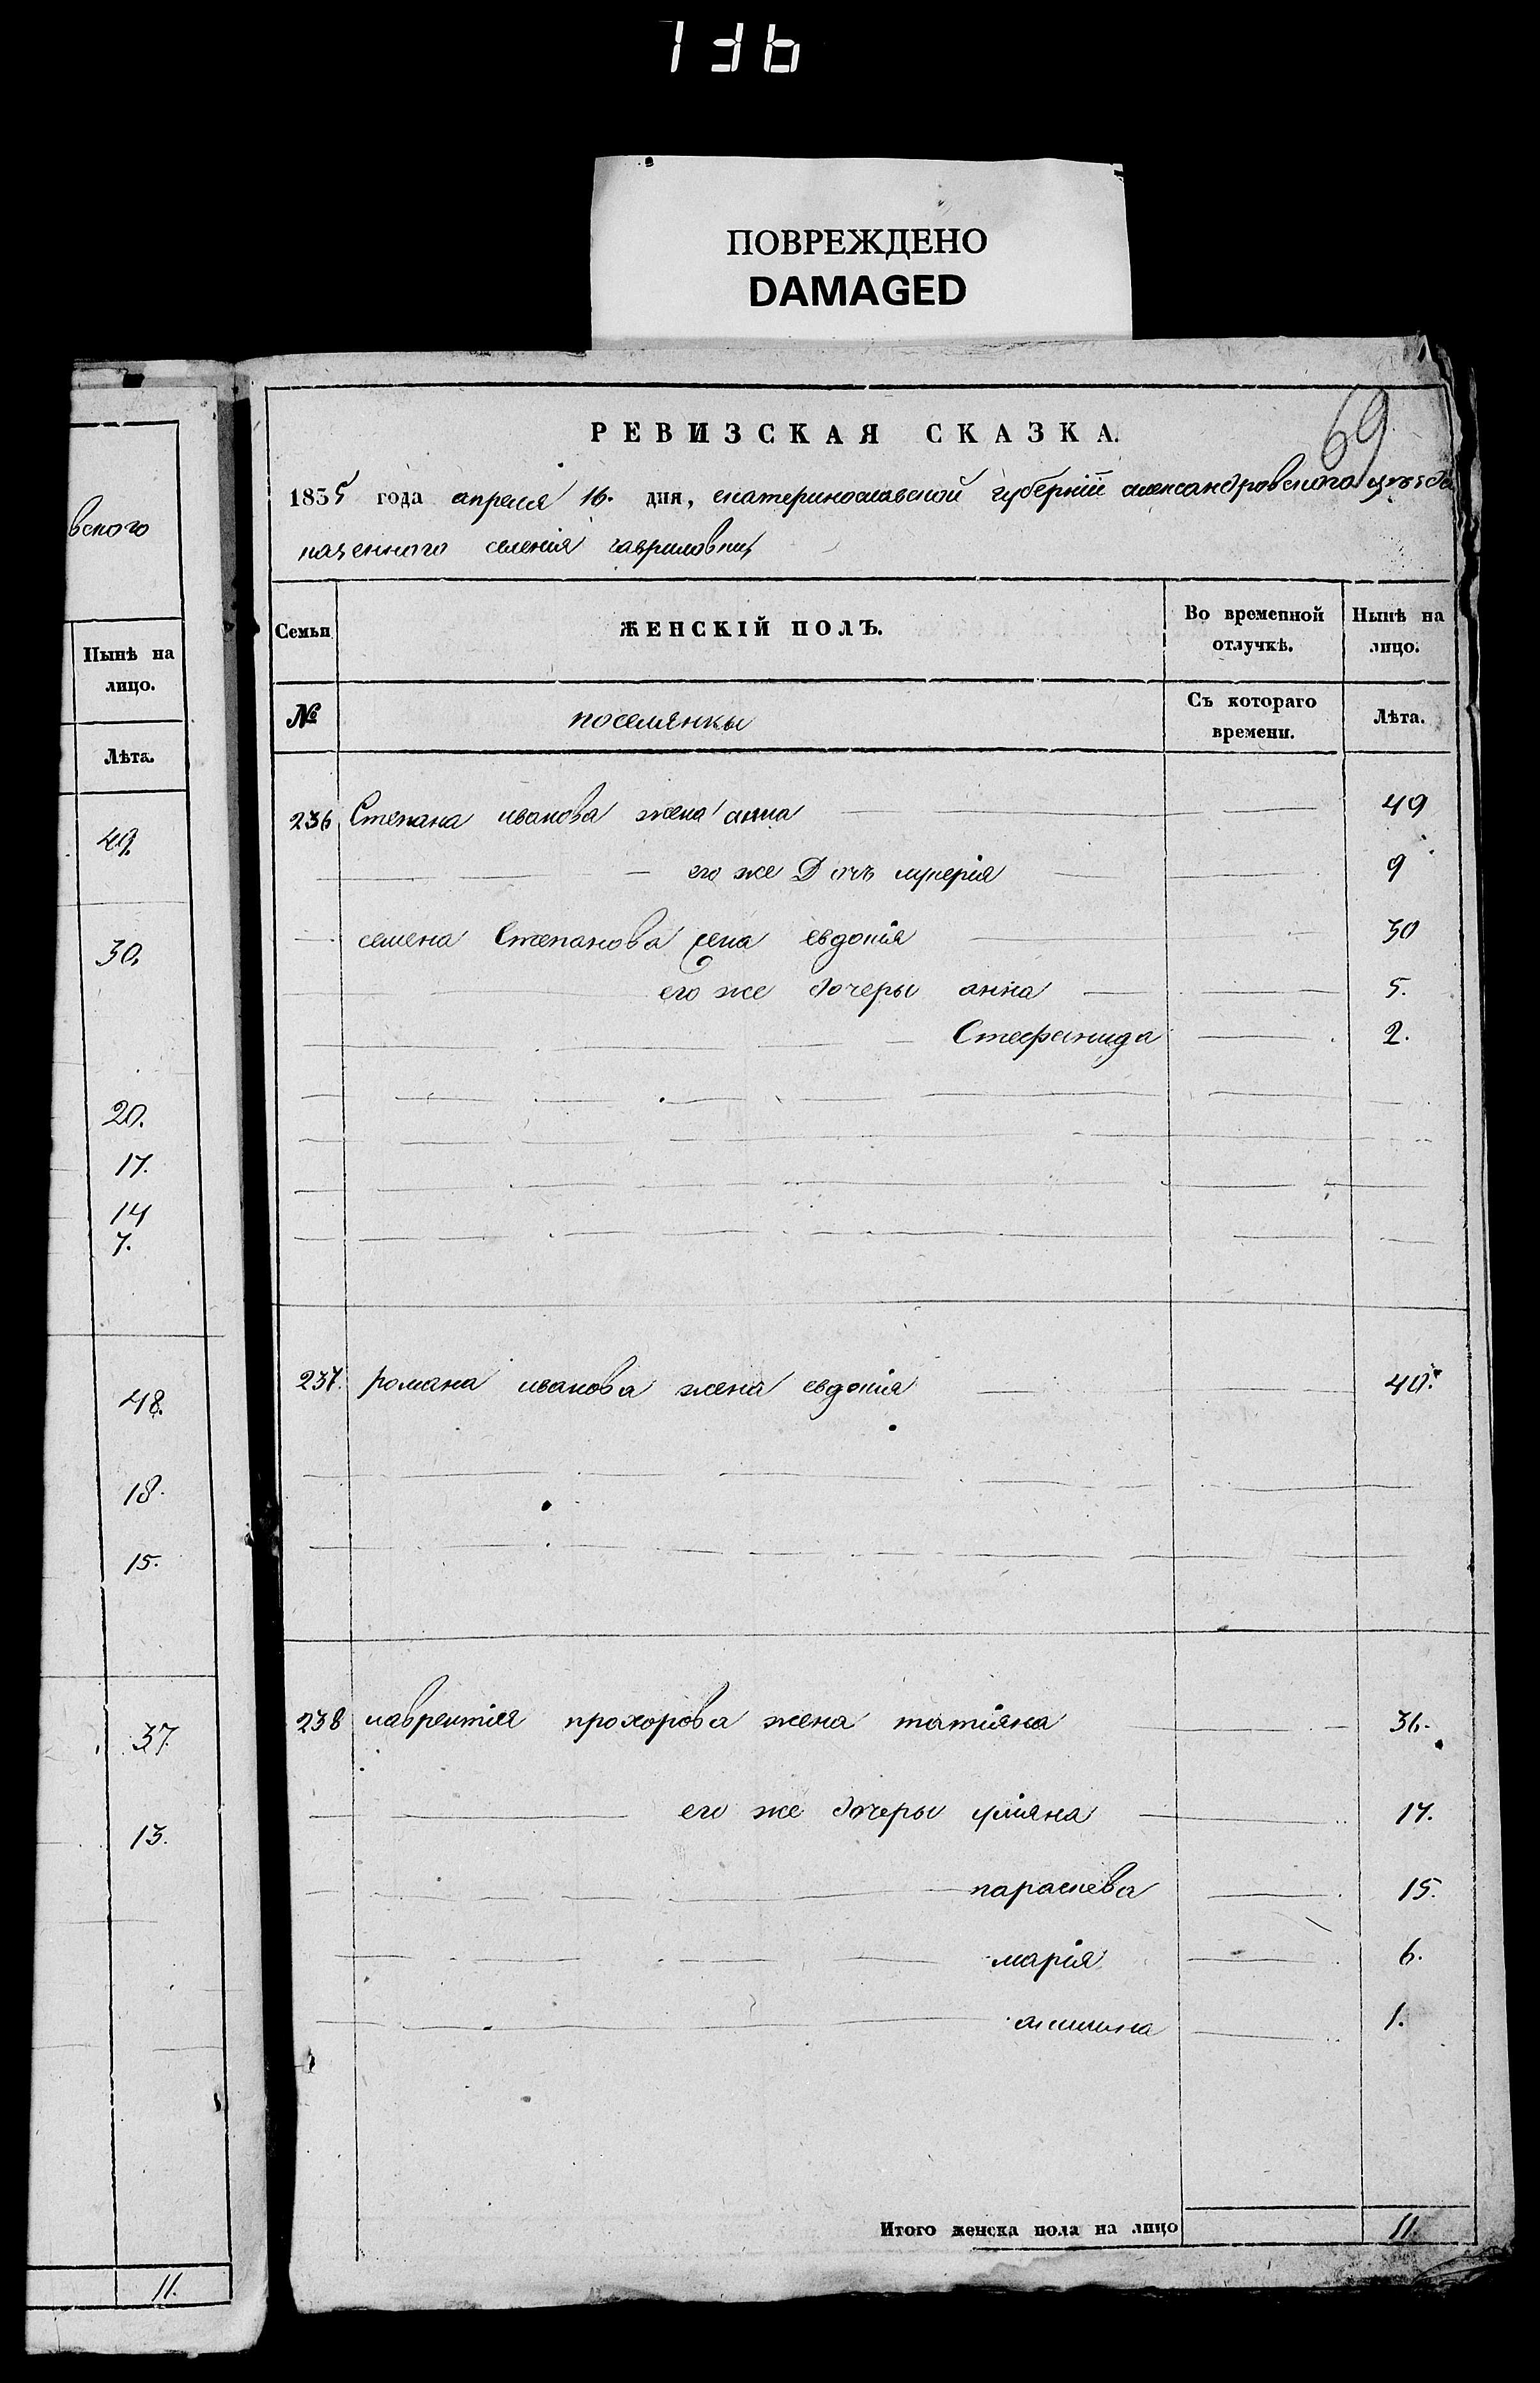 136
ПОВРЕЖДЕНО
DAMAGED
69
РЕВИЗСКАЯ СКАЗКА.
1835 года апреля 16. дня, екатеринославской губерніи александровского уѣзда
казенного селенія гавриловки
вского
Нынѣ на
лицо.
Лѣта.
49.
30.
20.
17.
14
7.
48.
18.
15.
37.
13.
11.
Семьи ЖЕНСКІЙ ПОЛЪ. Во временной отлучкѣ. Нынѣ на лицо.
№ поселянки Съ котораго времени. Лѣта.
236 Степана иванова жена анна 49
его же Дочь лукерія 9
семена Степанова жена евдокія 30
его же дочеры анна 5.
Стефанида 2.
237. романа иванова жена евдокія 40.
238 лаврентія прохорова жена татіяна 36.
его же дочеры уліяна 17.
параскева 15.
марія 6.
1.
Итого женска пола на лицо 11.